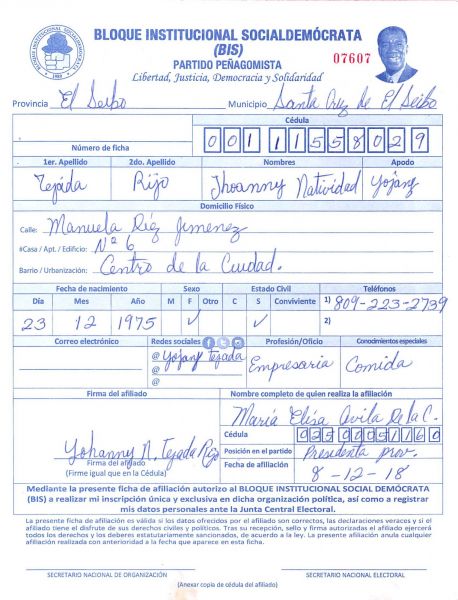 BLOQUE INSTITUCIONAL SOCIALDEMÓCRATA
(BIS)
07607
PARTIDO PEÑAGOMISTA
Libertad, Justicia, Democracia y Solidaridad
Provincia El Seibo Municipio Santa Cruz de El Seibo
Cédula
Número de ficha 00111558029
1er. Apellido 2do. Apellido Nombres Apodo
Tejada Rijo Jhoanny Natividad Yojany
Domicilio Físico
Calle: Manuela Díez Jimenez
#Casa / Apt. / Edificio: Nº 6
Barrio / Urbanización: Centro de la Ciudad.
Fecha de nacimiento Sexo Estado Civil Teléfonos
Día Mes Año M F Otro C S Conviviente 1) 809-223-2739
23 12 1975 ✓ ✓ 2)
Correo electrónico Redes sociales Profesión/Oficio Conocimientos especiales
@ Yojany Tejada Empresaria Comida
@
@
Firma del afiliado Nombre completo de quien realiza la afiliación
María Elisa Avila De la C.
Cédula 02500051160
Yohanny N. Tejada Rijo Posición en el partido Presidenta prov.
Firma del afiliado Fecha de afiliación
(Firme igual que en la Cédula) 8-12-18
Mediante la presente ficha de afiliación autorizo al BLOQUE INSTITUCIONAL SOCIAL DEMÓCRATA
(BIS) a realizar mi inscripción única y exclusiva en dicha organización política, así como a registrar
mis datos personales ante la Junta Central Electoral.
La presente ficha de afiliación es válida si los datos ofrecidos por el afiliado son correctos, las declaraciones veraces y si el
afiliado tiene el disfrute de sus derechos civiles y políticos. Tras su recepción, sello y firma autorizadas el afiliado ejercerá
todos los derechos y los deberes estatutariamente sancionados, de acuerdo a la ley. La presente afiliación anula cualquier
afiliación realizada con anterioridad a la fecha que aparece en esta ficha.
SECRETARIO NACIONAL DE ORGANIZACIÓN SECRETARIO NACIONAL ELECTORAL
(Anexar copia de cédula del afiliado)